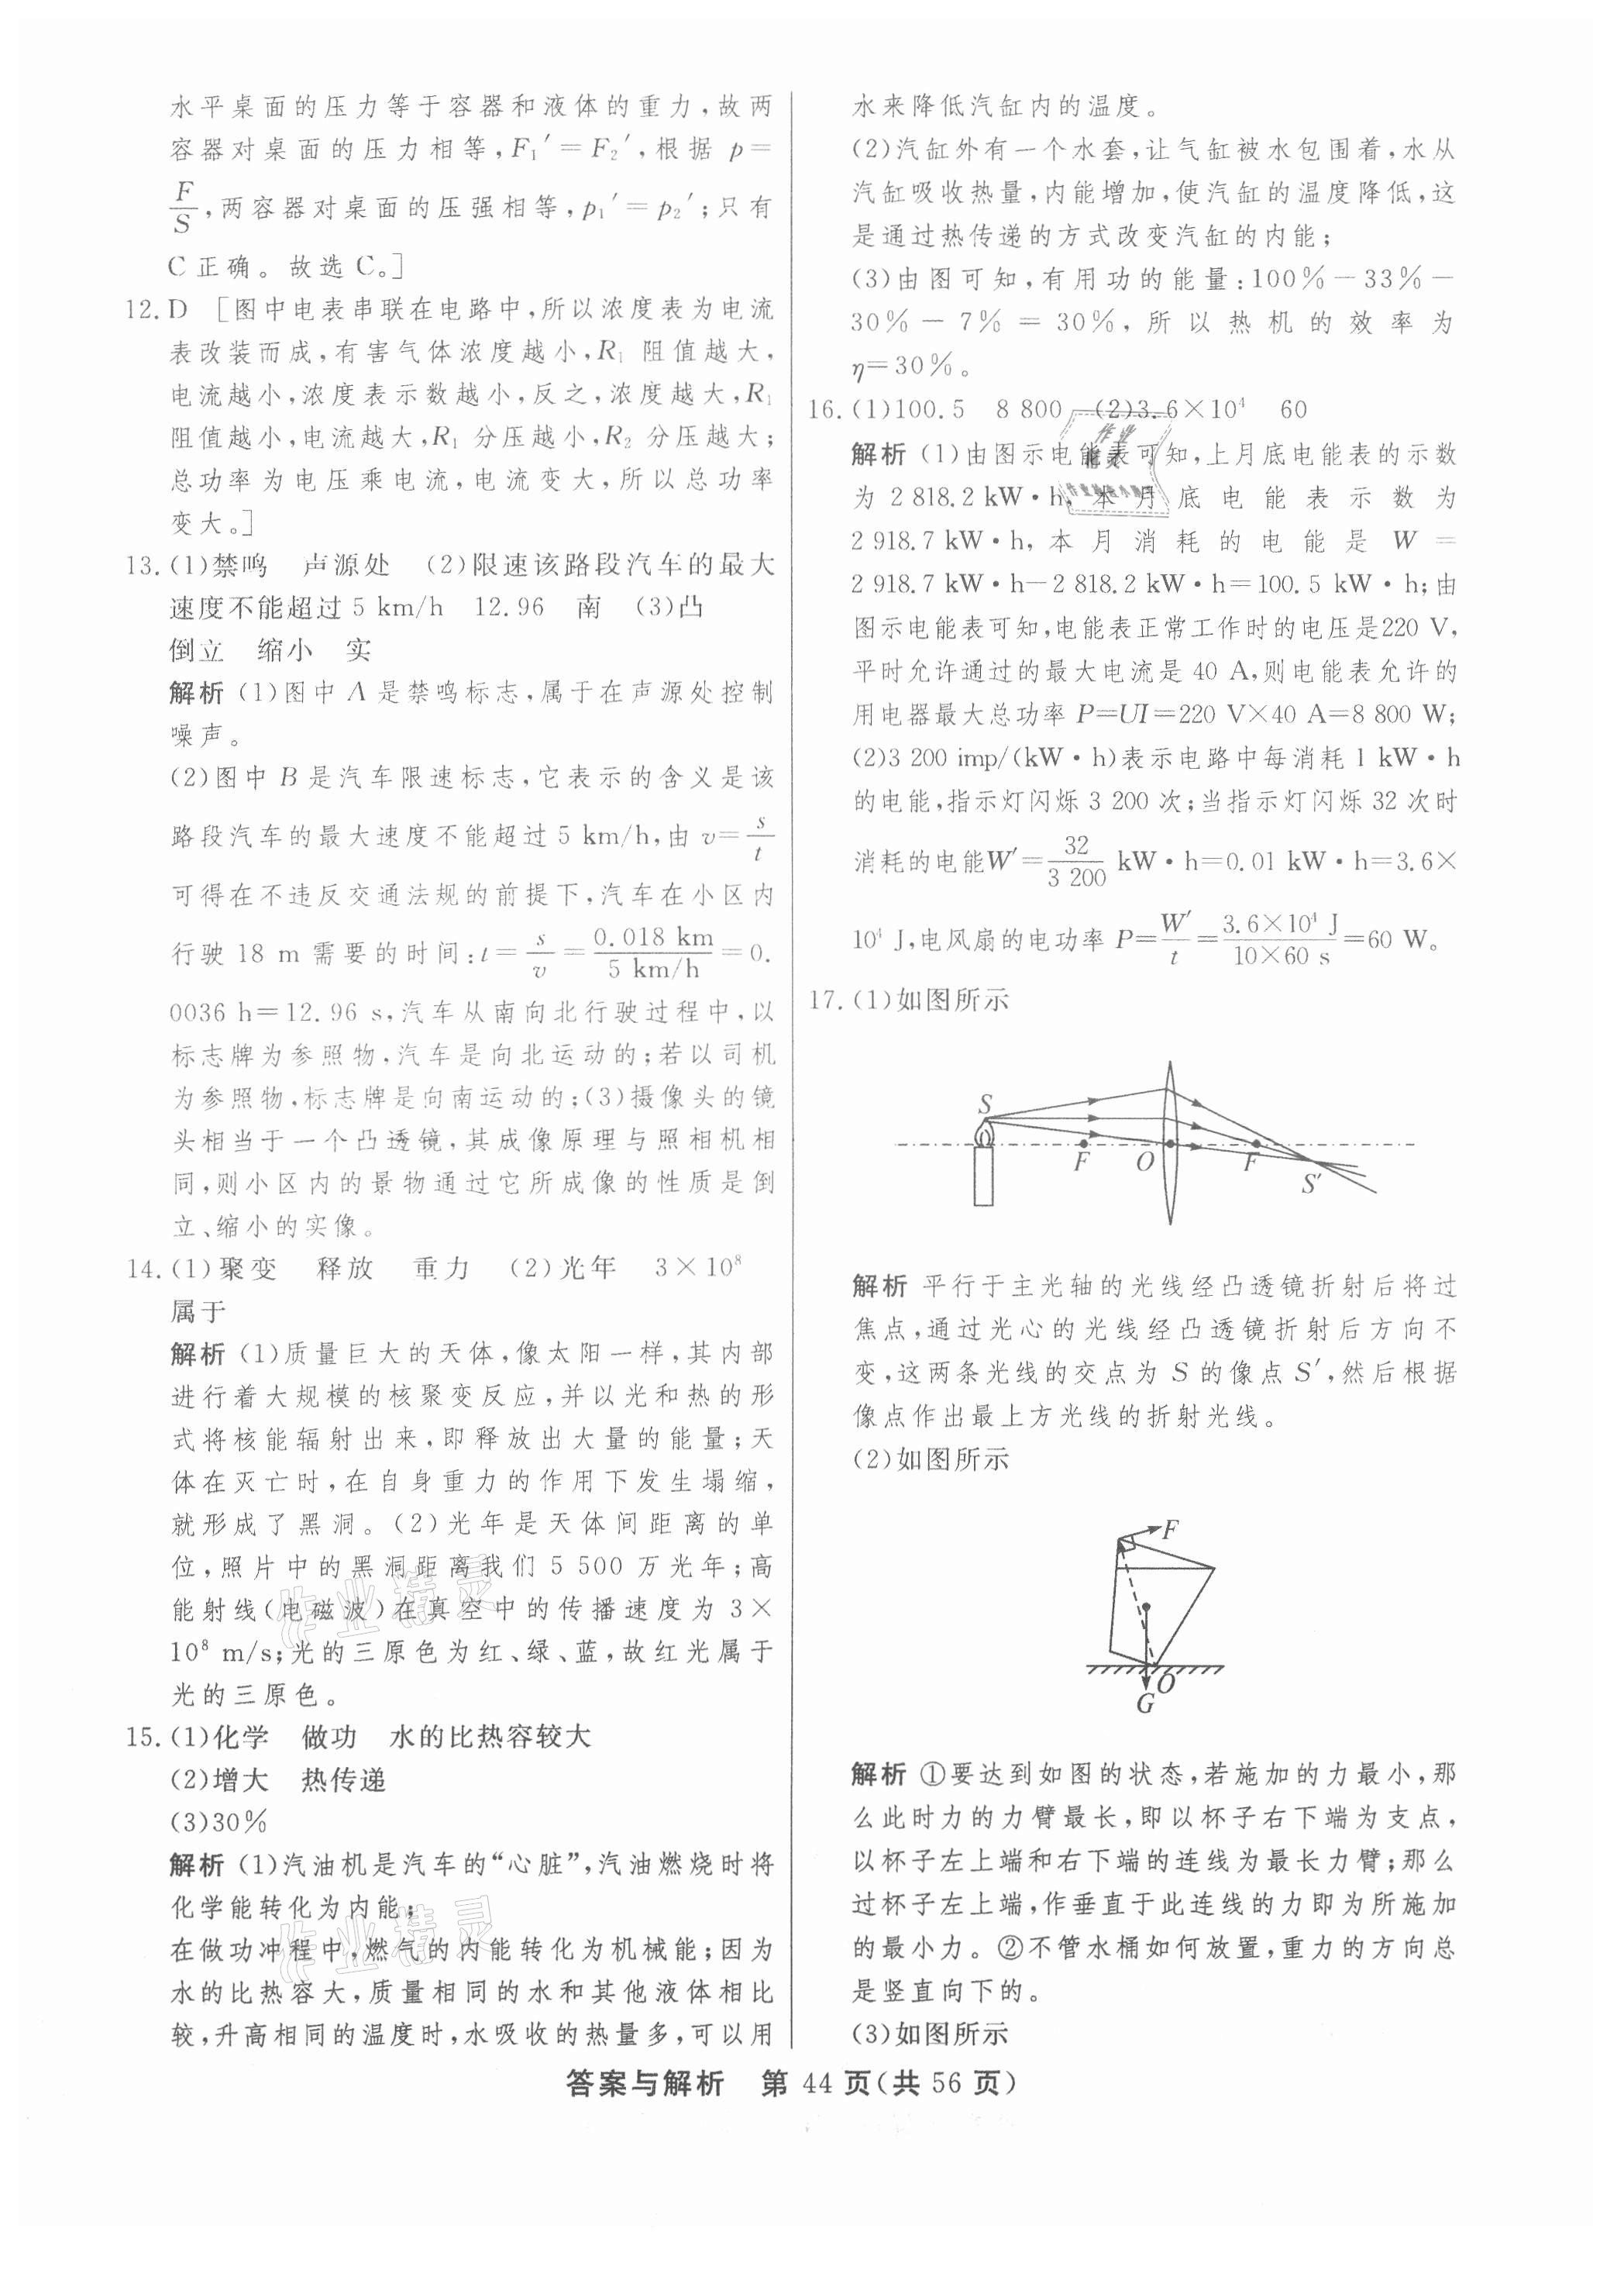 水平桌面的压力等于容器和液体的重力,故两
容器对桌面的压力相等,F₁′=F₂′,根据 p=
F/S,两容器对桌面的压强相等,p₁′=p₂′;只有
C正确。故选C。]
12.D [图中电表串联在电路中,所以浓度表为电流
表改装而成,有害气体浓度越小,R₁ 阻值越大,
电流越小,浓度表示数越小,反之,浓度越大,R₁
阻值越小,电流越大,R₁ 分压越小,R₂ 分压越大;
总功率为电压乘电流,电流变大,所以总功率
变大。]
13.(1)禁鸣 声源处 (2)限速该路段汽车的最大
速度不能超过5 km/h 12.96 南 (3)凸
倒立 缩小 实
解析 (1)图中 A 是禁鸣标志,属于在声源处控制
噪声。
(2)图中 B 是汽车限速标志,它表示的含义是该
路段汽车的最大速度不能超过 5 km/h,由 v=s/t
可得在不违反交通法规的前提下,汽车在小区内
行驶 18 m 需要的时间:t=s/v=0.018 km/5 km/h=0.
0036 h=12.96 s,汽车从南向北行驶过程中,以
标志牌为参照物,汽车是向北运动的;若以司机
为参照物,标志牌是向南运动的;(3)摄像头的镜
头相当于一个凸透镜,其成像原理与照相机相
同,则小区内的景物通过它所成像的性质是倒
立、缩小的实像。
14.(1)聚变 释放 重力 (2)光年 3×10⁸
属于
解析 (1)质量巨大的天体,像太阳一样,其内部
进行着大规模的核聚变反应,并以光和热的形
式将核能辐射出来,即释放出大量的能量;天
体在灭亡时,在自身重力的作用下发生塌缩,
就形成了黑洞。(2)光年是天体间距离的单
位,照片中的黑洞距离我们 5 500 万光年;高
能射线(电磁波)在真空中的传播速度为 3×
10⁸ m/s;光的三原色为红、绿、蓝,故红光属于
光的三原色。
15.(1)化学 做功 水的比热容较大
(2)增大 热传递
(3)30%
解析 (1)汽油机是汽车的“心脏”,汽油燃烧时将
化学能转化为内能;
在做功冲程中,燃气的内能转化为机械能;因为
水的比热容大,质量相同的水和其他液体相比
较,升高相同的温度时,水吸收的热量多,可以用
水来降低汽缸内的温度。
(2)汽缸外有一个水套,让气缸被水包围着,水从
汽缸吸收热量,内能增加,使汽缸的温度降低,这
是通过热传递的方式改变汽缸的内能;
(3)由图可知,有用功的能量:100%-33%-
30%-7%=30%,所以热机的效率为
η=30%。
16.(1)100.5 8 800 (2)3.6×10⁴ 60
解析 (1)由图示电能表可知,上月底电能表的示数
为 2 818.2 kW·h,本月底电能表示数为
2 918.7 kW·h,本月消耗的电能是 W=
2 918.7 kW·h-2 818.2 kW·h=100.5 kW·h;由
图示电能表可知,电能表正常工作时的电压是220 V,
平时允许通过的最大电流是 40 A,则电能表允许的
用电器最大总功率 P=UI=220 V×40 A=8 800 W;
(2)3 200 imp/(kW·h)表示电路中每消耗 1 kW·h
的电能,指示灯闪烁 3 200 次;当指示灯闪烁 32 次时
消耗的电能W′=32/3 200 kW·h=0.01 kW·h=3.6×
10⁴ J,电风扇的电功率 P=W′/t=3.6×10⁴ J/10×60 s=60 W。
17.(1)如图所示
S
F O F
S′
解析 平行于主光轴的光线经凸透镜折射后将过
焦点,通过光心的光线经凸透镜折射后方向不
变,这两条光线的交点为 S 的像点 S′,然后根据
像点作出最上方光线的折射光线。
(2)如图所示
F
O
G
解析 ①要达到如图的状态,若施加的力最小,那
么此时力的力臂最长,即以杯子右下端为支点,
以杯子左上端和右下端的连线为最长力臂;那么
过杯子左上端,作垂直于此连线的力即为所施加
的最小力。②不管水桶如何放置,重力的方向总
是竖直向下的。
(3)如图所示
答案与解析 第 44 页(共 56 页)
作业精灵
作业精灵
作业
精灵